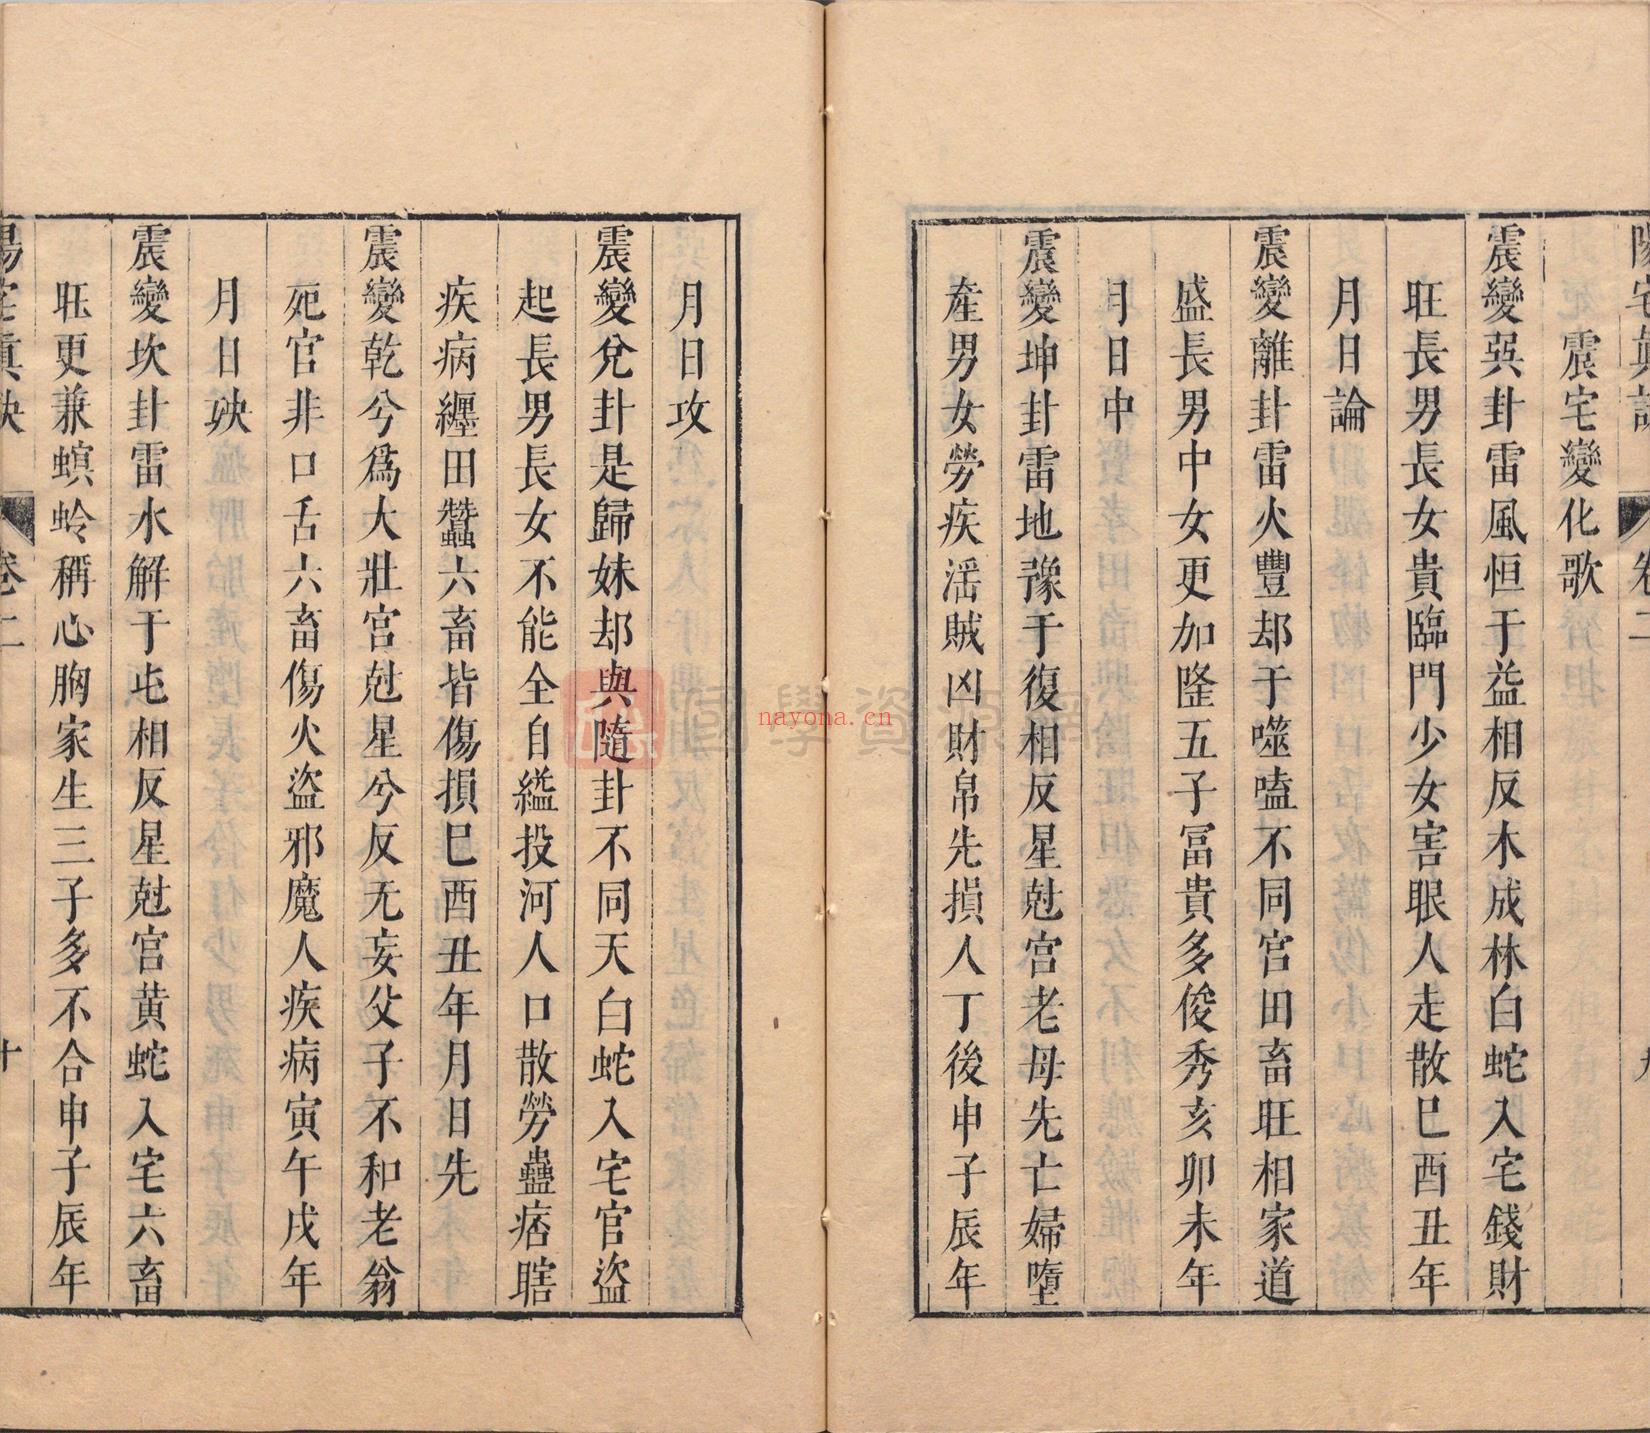 震宅變化歌
震變巽卦雷風恒于益相反木成林白蛇入宅錢財
旺長男長女貴臨門少女害眼人走散巳酉丑年
月日論
震變離卦雷火豐却于噬嗑不同宮田畜旺相家道
盛長男中女更加隆五子冨貴多俊秀亥卯未年
月日中
震變坤卦雷地豫于復相反星尅宮老母先亡婦墮
產男女勞疾滛賊凶財帛先損人丁後申子辰年
月日攻
震變兌卦是歸妹却與隨卦不同天白蛇入宅官盜
起長男長女不能全自縊投河人口散勞蠱痞瞎
疾病纏田蠶六畜皆傷損巳酉丑年月日先
震變乾兮爲大壯宮尅星兮反无妄父子不和老翁
死官非口舌六畜傷火盜邪魔人疾病寅午戌年
月日殃
震變坎卦雷水解于屯相反星尅宮黃蛇入宅六畜
旺更兼螟蛉稱心胸家生三子多不合申子辰年
卷二
十
nayona.cn